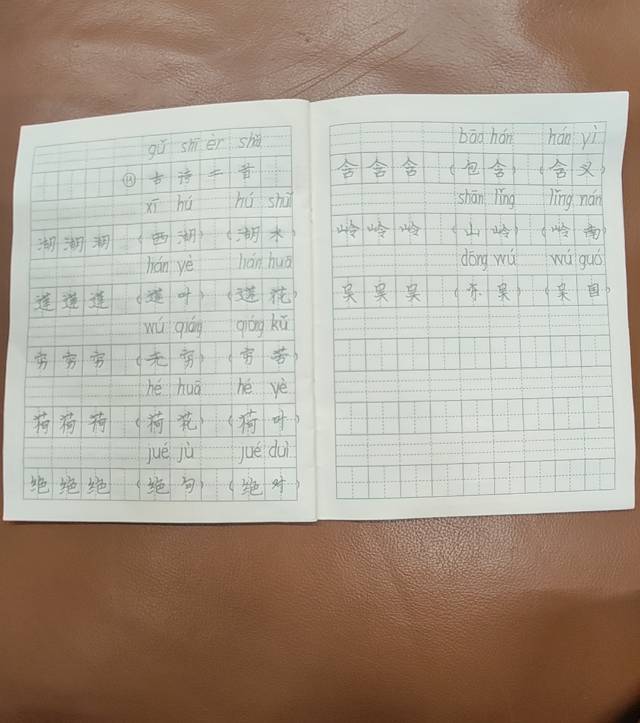 gǔ shī èr shǒu
⑮ 古诗二首
xī hú hú shuǐ
湖 湖 湖 (西湖) (湖水)
hán yè hán huā
莲 莲 莲 (莲叶) (莲花)
wú qióng qióng kǔ
穷 穷 穷 (无穷) (穷苦)
hé huā hé yè
荷 荷 荷 (荷花) (荷叶)
jué jù jué duì
绝 绝 绝 (绝句) (绝对)
bāo hán hán yì
含 含 含 (包含) (含义)
shān lǐng lǐng nán
岭 岭 岭 (山岭) (岭南)
dōng wú wú guó
吴 吴 吴 (东吴) (吴国)